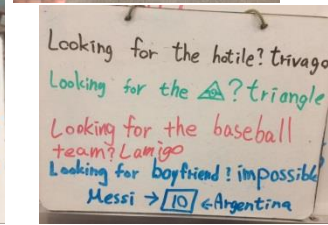 Looking for the hotile? trivago
Looking for the ? triangle
Looking for the baseball
team? Lamigo
Looking for boyfriend! impossible
Messi → 10 ← Argentina